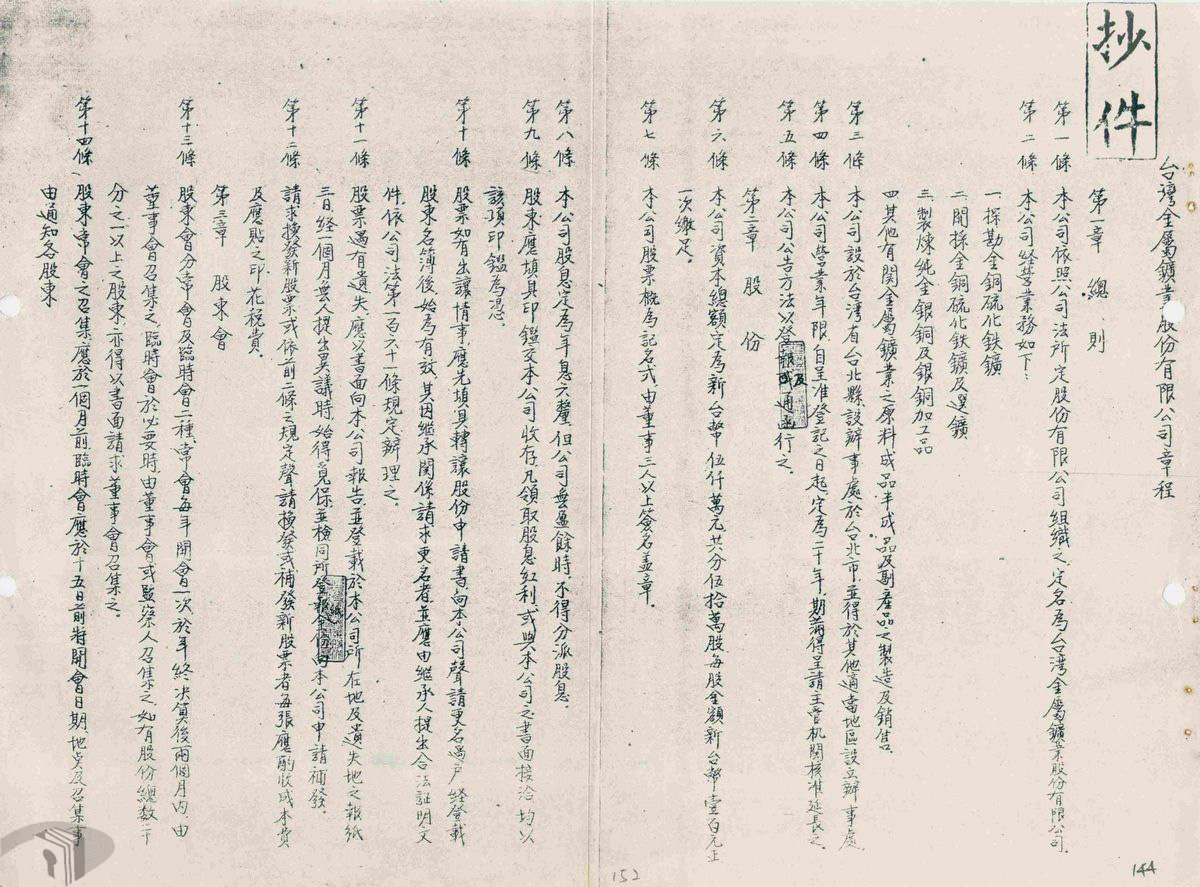 抄件
台灣金屬鑛業股份有限公司章程
第一章 總則
第一條 本公司依照公司法所定股份有限公司組織之定名為台灣金屬鑛業股份有限公司.
第二條 本公司經營業務如下:
一、探勘金銅硫化鉄鑛
二、開採金銅硫化鉄鑛及選鑛
三、製煉純金銀銅及銀銅加工品
四、其他有関金屬鑛業之原料成品半成品及副產品之製造及銷售.
第三條 本公司設於台灣省台北縣設辦事處於台北市、並得於其他適當地區設立辦事處.
第四條 本公司營業年限、自呈准登記之日起、定為二十年、期滿得呈請主管机関核准延長之.
第五條 本公司公告方法以登報及通函行之.
第二章 股份
第六條 本公司資本總額定為新台幣伍仟萬元共分伍拾萬股每股金額新台幣壹百元正
一次繳足.
第七條 本公司股票概為記名式、由董事三人以上簽名盖章.
第八條 本公司股息定為年息六釐、但公司無盈餘時、不得分派股息.
第九條 股東應填具印鑑交本公司收存、凡領取股息紅利、或與本公司之書面接洽、均以
該項印鑑為憑.
第十條 股票如有出讓情事、應先填具轉讓股份申請書、向本公司聲請更名過户經登載
股東名簿後、始為有效、其因繼承関係請求更名者、並應由繼承人提出合法証明文
件、依公司法第一百六十一條規定辦理之.
第十一條 股票遇有遺失、應以書面向本公司報告、並登載於本公司所在地及遺失地之報紙
三日、經一個月無人提出異議時、始得覓保、並檢同所登報紙向本公司申請補發.
第十二條 請求換發新股票或依前二條之規定聲請換發或補發新股票者每張應酌收成本費
及應貼之印花稅費.
第三章 股東會
第十三條 股東會分常會及臨時會二種、常會每年開會一次於年終決算後兩個月內、由
董事會召集之、臨時會於必要時、由董事會或監察人召集之、如有股份總数二十
分之一以上之股東、亦得以書面請求董事會召集之.
第十四條 股東常會之召集應於一個月前臨時會應於十五日前将開會日期、地点及召集事
由通知各股東
152
144